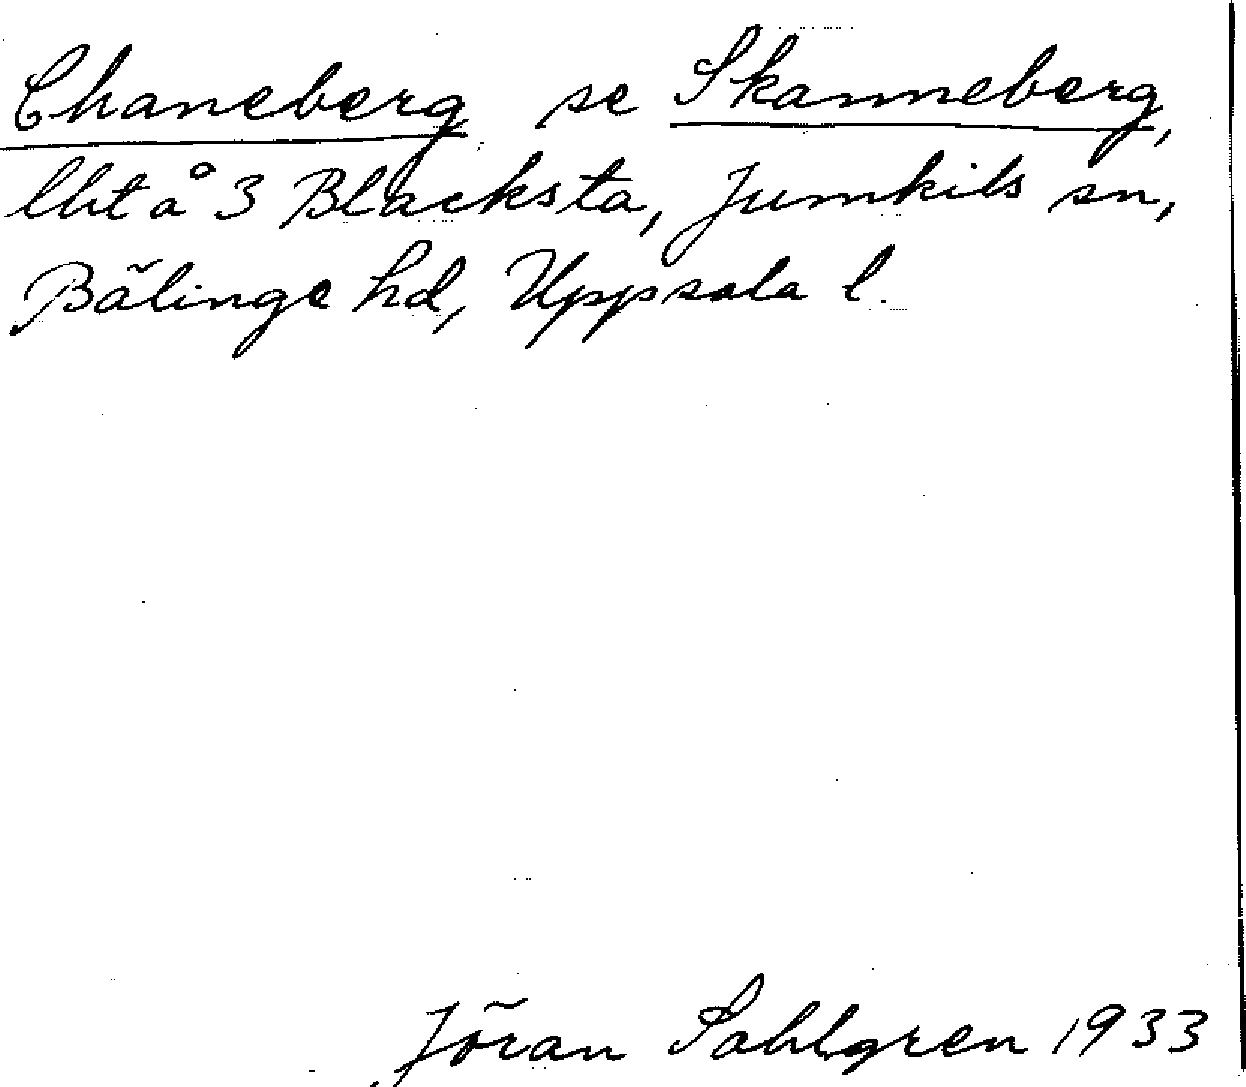 Chaneberg se Skanneberg,
lht å 3 Blacksta, Jumkils sn,
Bälinge hd, Uppsala l.
Jöran Sahlgren 1933